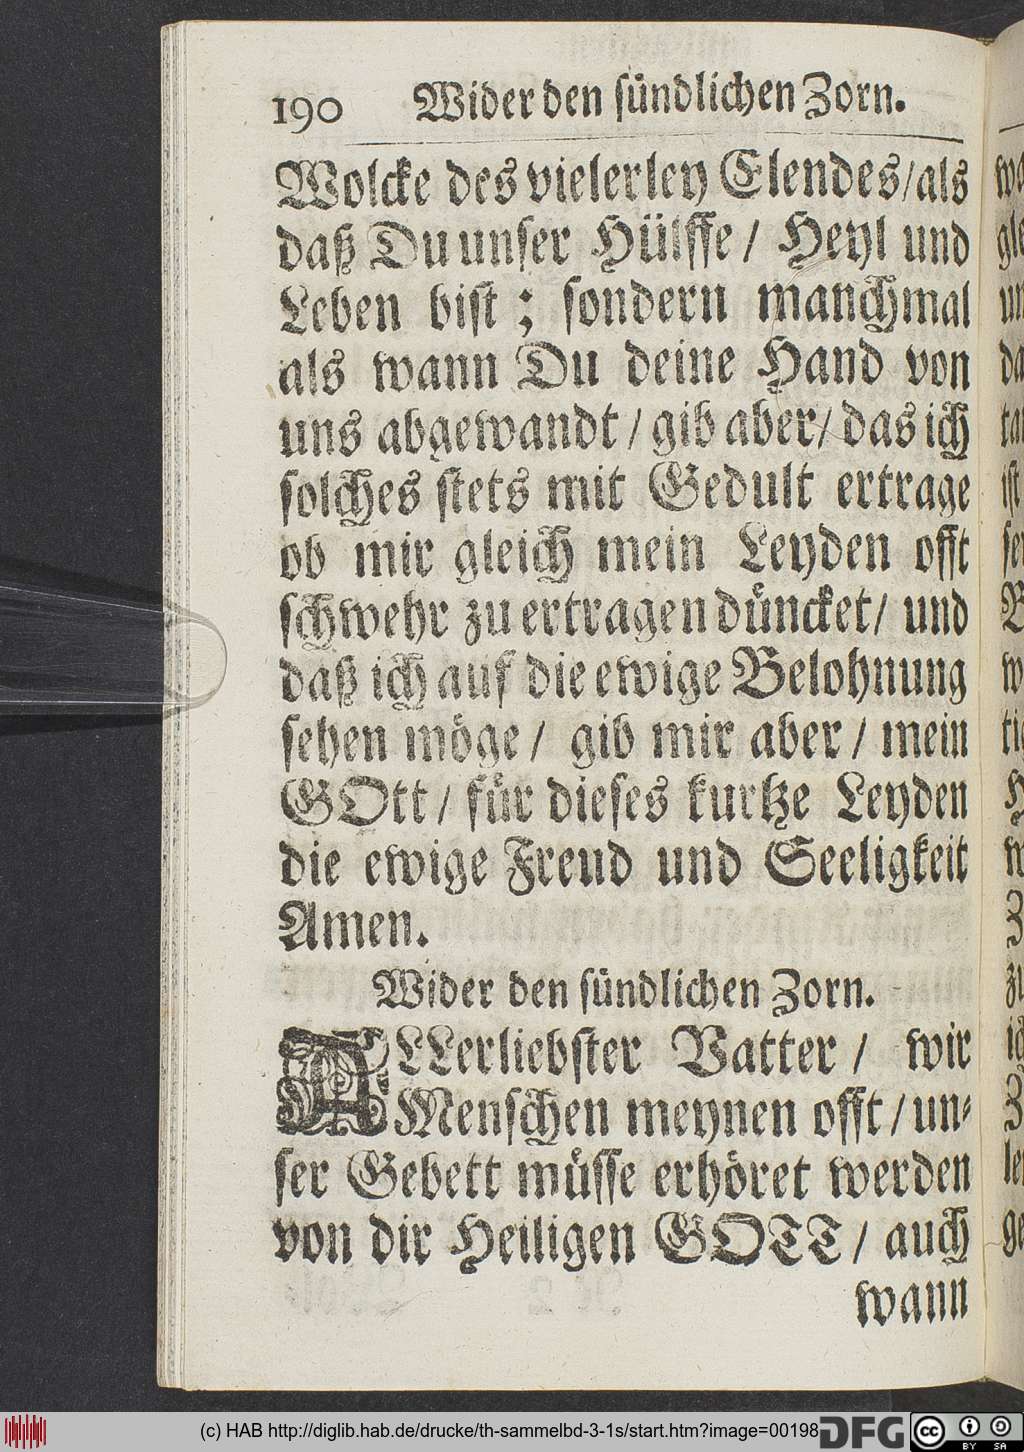 190 Wider den sündlichen Zorn.
Wolcke des vielerley Elendes/als
daß Du unser Hülffe / Heyl und
Leben bist ; sondern manchmal
als wann Du deine Hand von
uns abgewandt / gib aber/ das ich
solches stets mit Gedult ertrage
ob mir gleich mein Leyden offt
schwehr zu ertragen düncket/ und
daß ich auf die ewige Belohnung
sehen möge / gib mir aber / mein
GOtt / für dieses kurtze Leyden
die ewige Freud und Seeligkeit
Amen.
Wider den sündlichen Zorn.
ALLerliebster Vatter / wir
Menschen meynen offt / un-
ser Gebett müsse erhöret werden
von dir Heiligen GOTT / auch
wann
(c) HAB http://diglib.hab.de/drucke/th-sammelbd-3-1s/start.htm?image=00198
DFG
cc
BY SA